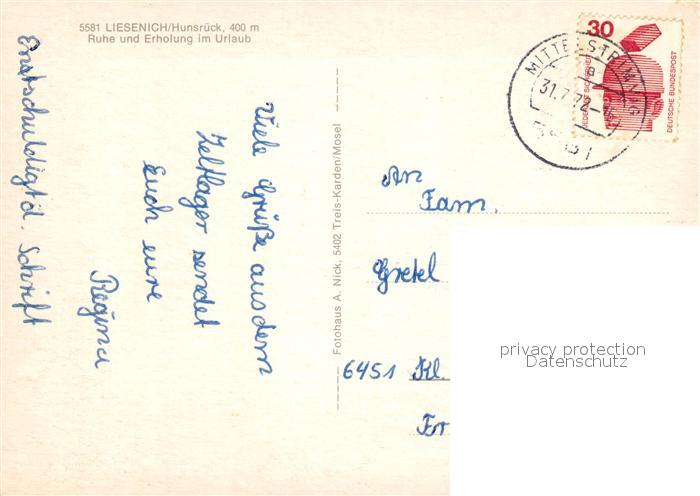 5581 LIESENICH/Hunsrück, 400 m
Ruhe und Erholung im Urlaub
Enatschuldigt d. Schrift
Viele Grüße aus dem
Zeltlager sendet
Euch eure
Regina
Fotohaus A. Nick, 5402 Treis-Karden/Mosel
30
JEDERZEIT SICHERHEIT
DEUTSCHE BUNDESPOST
MITTELSTRIMMIG
a
31.7.72
An
Fam.
Gretel
6451 Kl.
Er
privacy protection
Datenschutz